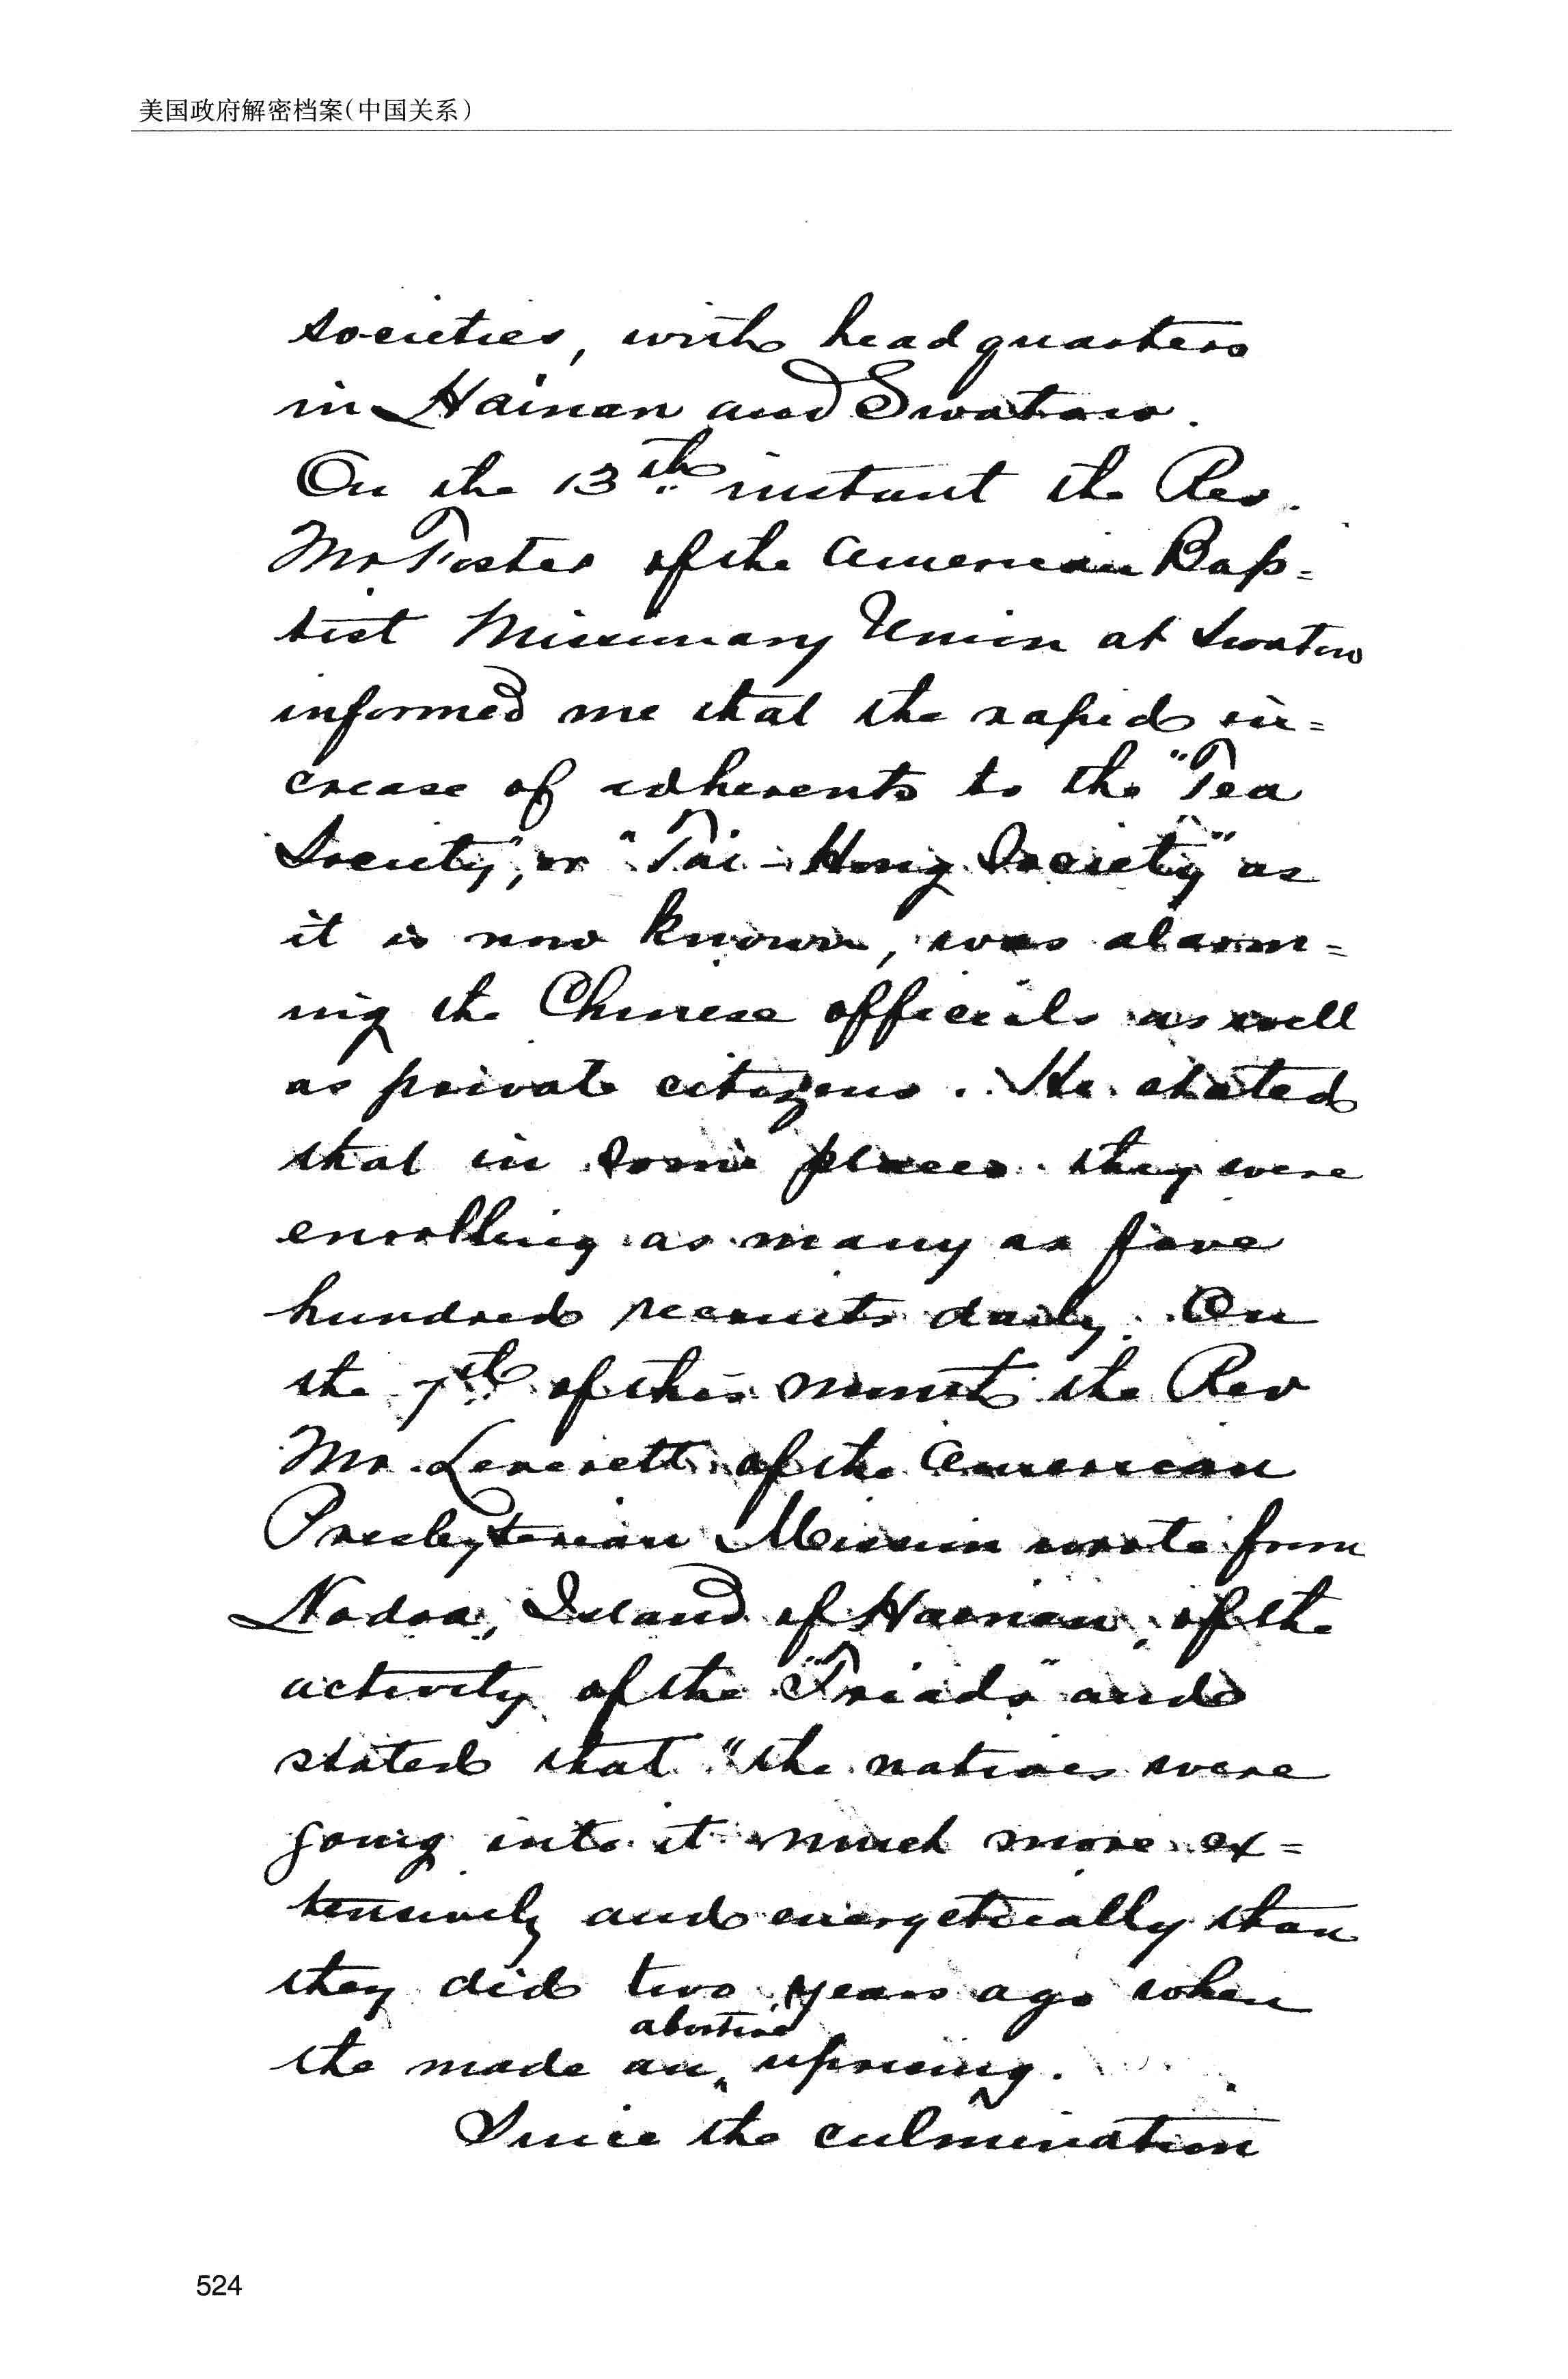 美国政府解密档案(中国关系)
societies, with headquarters
in Hainan and Swatow.
On the 13th instant the Rev.
Mr Foster of the American Bap=
tist Missionary Union at Swatow
informed me that the rapid in=
crease of adherents to the "Tea
Society", or "Tai-Hong Society" as
it is now known, was alarm=
ing the Chinese officials as well
as private citizens. He stated
that in some places they were
enrolling as many as five
hundred recruits daily. On
the 7th of this month the Rev
Mr. Leverett of the American
Presbyterian Mission wrote from
Nodoa, Island of Hainan, of the
activity of the "Triads" and
stated that "the natives were
going into it much more ex=
tensively and energetically than
they did two years ago when
abortive
the made an uprising.
Since the culmination
524